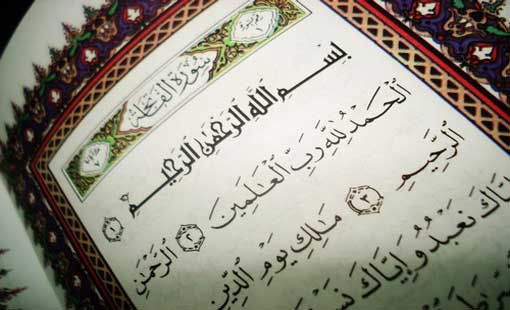 سُورَةُ الْفَاتِحَةِ
بِسْمِ اللَّهِ الرَّحْمَٰنِ الرَّحِيمِ ١
ٱلْحَمْدُ لِلَّهِ رَبِّ ٱلْعَٰلَمِينَ ٢ ٱلرَّحْمَٰنِ
ٱلرَّحِيمِ ٣ مَٰلِكِ يَوْمِ ٱلدِّينِ
يَّاكَ نَعْبُدُ وَإِيَّاكَ نَسْ